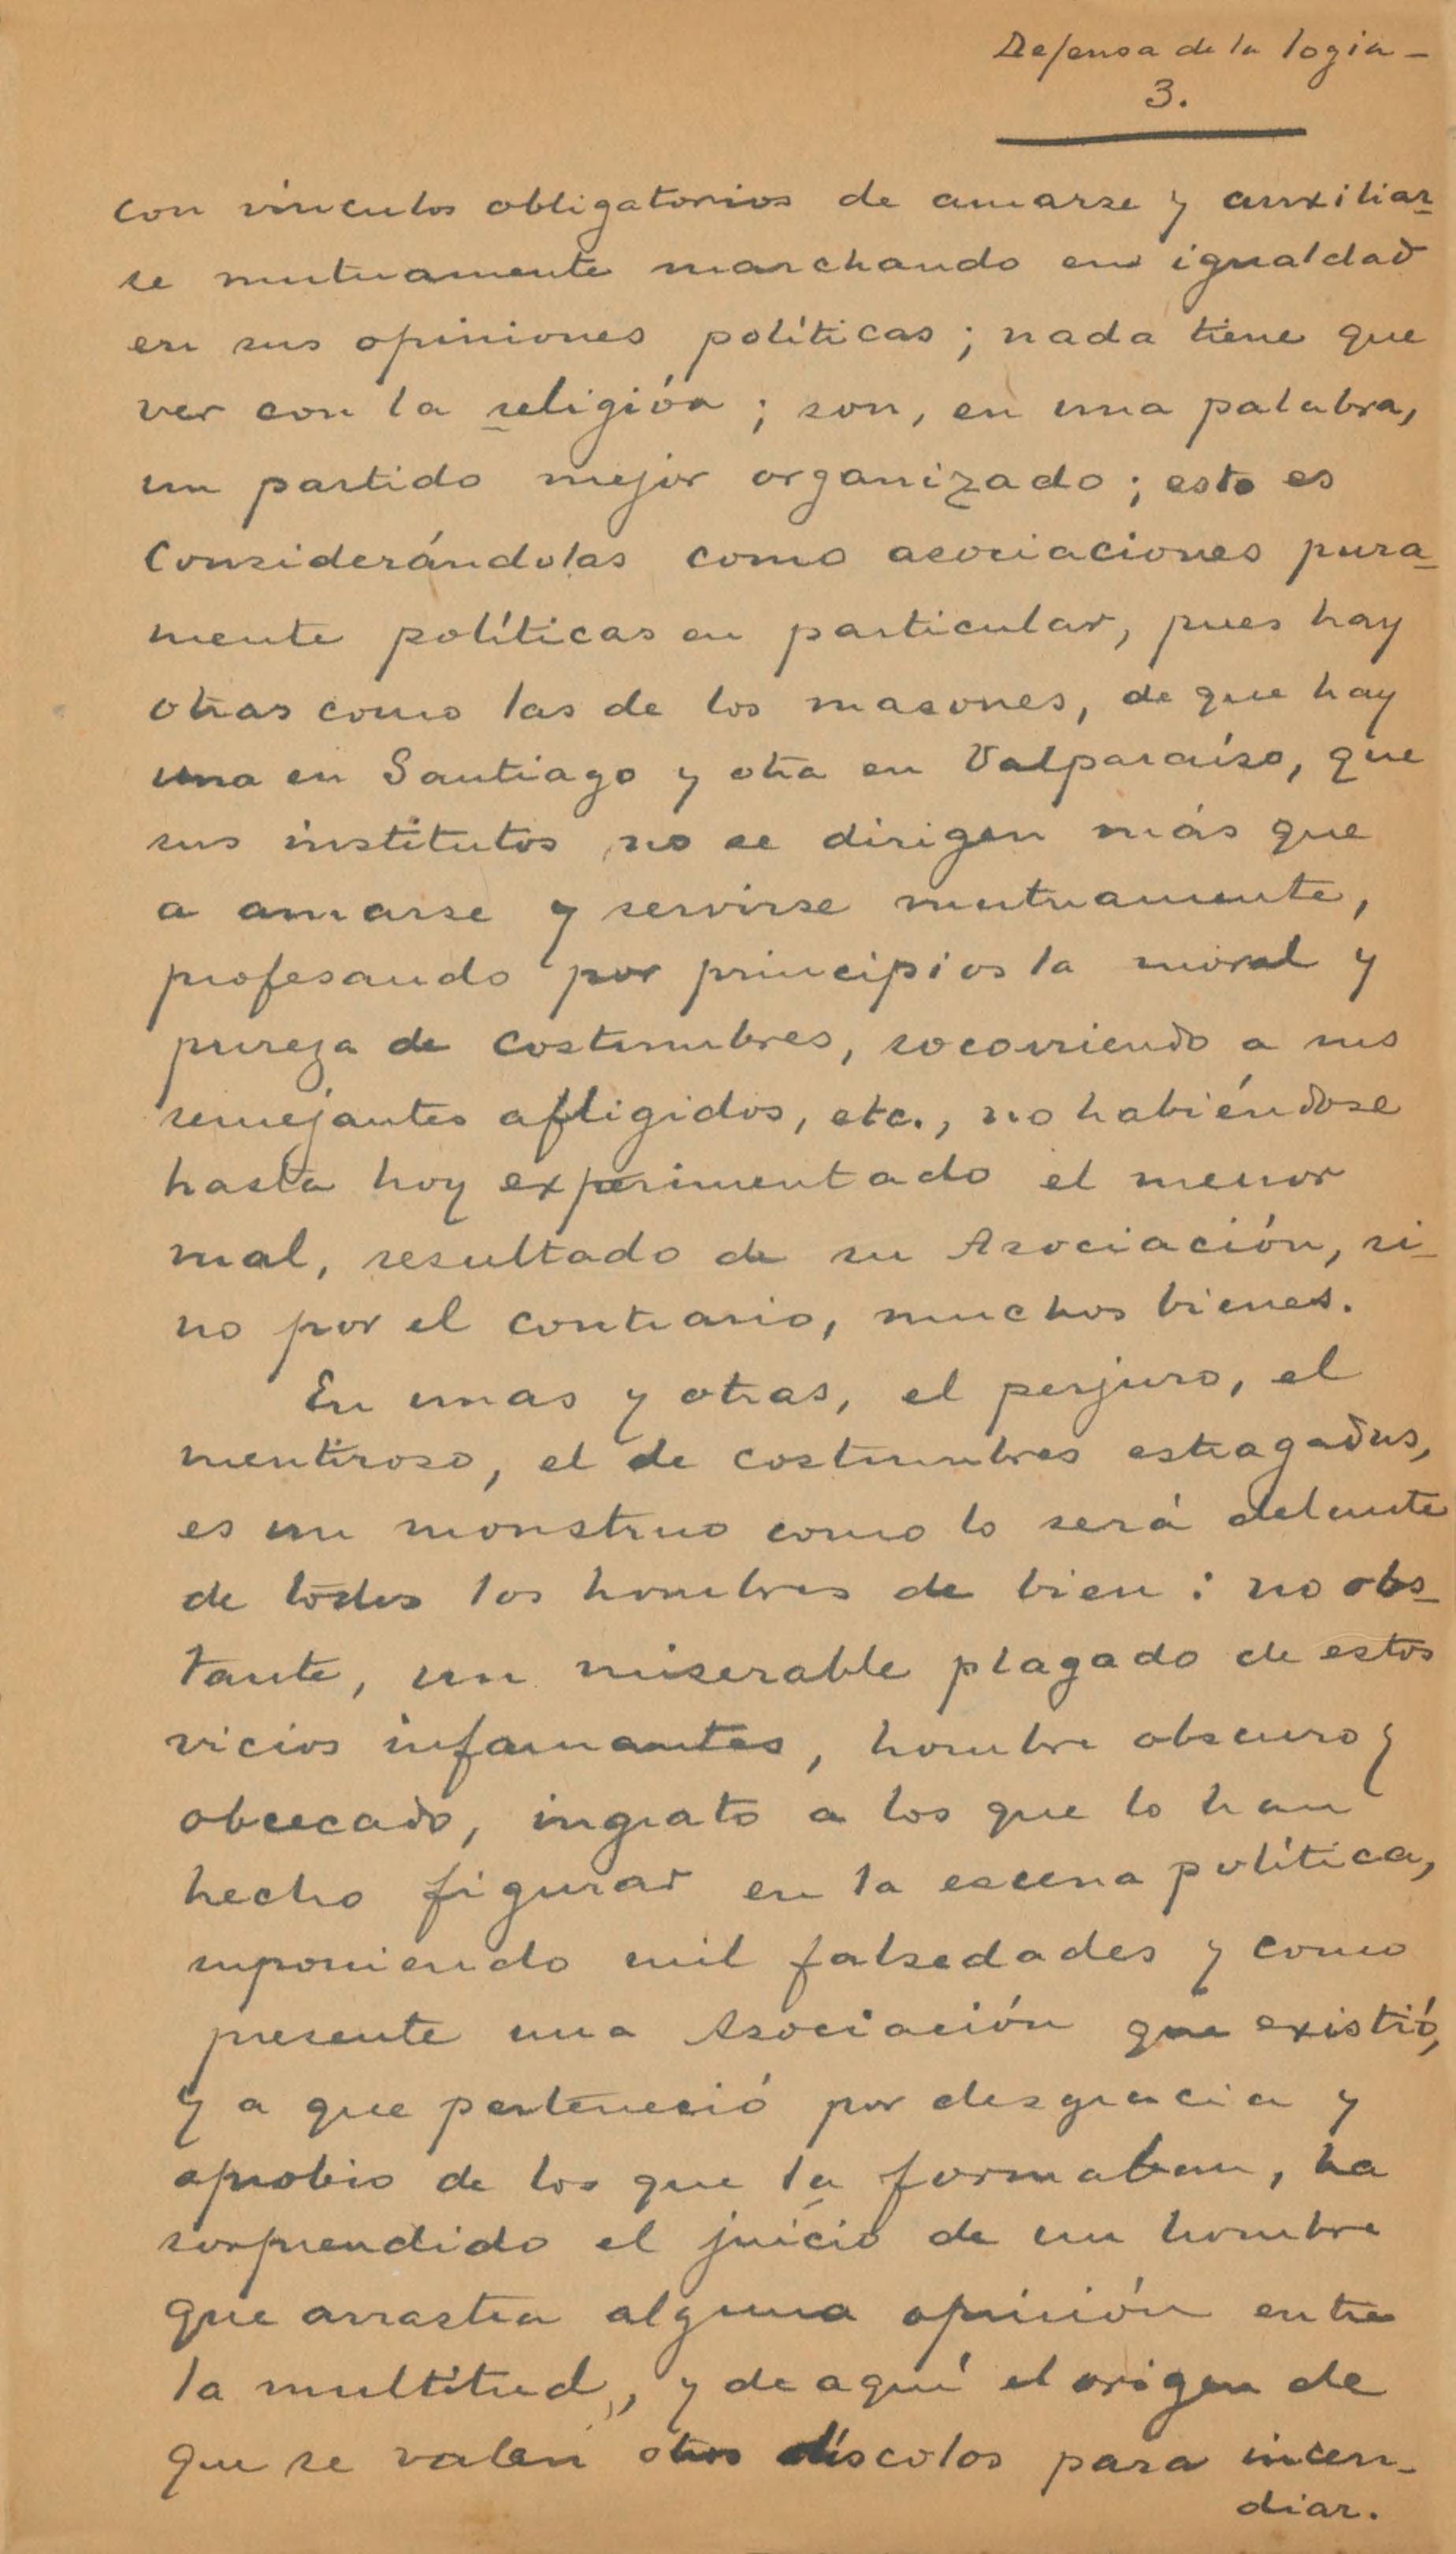 Defensa de la logia -
3.
con vínculos obligatorios de amarse y auxiliar-
se mutuamente marchando en igualdad
en sus opiniones políticas; nada tiene que
ver con la religión; son, en una palabra,
un partido mejor organizado; esto es
Considerándolas como asociaciones pura-
mente políticas en particular, pues hay
otras como las de los masones, de que hay
una en Santiago y otra en Valparaíso, que
sus institutos no se dirigen más que
a amarse y servirse mutuamente,
profesando por principios la moral y
pureza de costumbres, socorriendo a sus
semejantes afligidos, etc., no habiéndose
hasta hoy experimentado el menor
mal, resultado de su Asociación, si-
no por el contrario, muchos bienes.
En unas y otras, el perjuro, el
mentiroso, el de costumbres estragadas,
es un monstruo como lo será delante
de todos los hombres de bien: no obs-
tante, un miserable plagado de estos
vicios infamantes, hombre obscuro y
obcecado, ingrato a los que lo han
hecho figurar en la escena política,
suponiendo mil falsedades y como
presente una Asociación que existió,
y a que perteneció por desgracia y
oprobio de los que la formaban, ha
sorprendido el juicio de un hombre
que arrastra alguna opinión entre
la multitud, y de aquí el origen de
que se valen otros díscolos para incen-
diar.